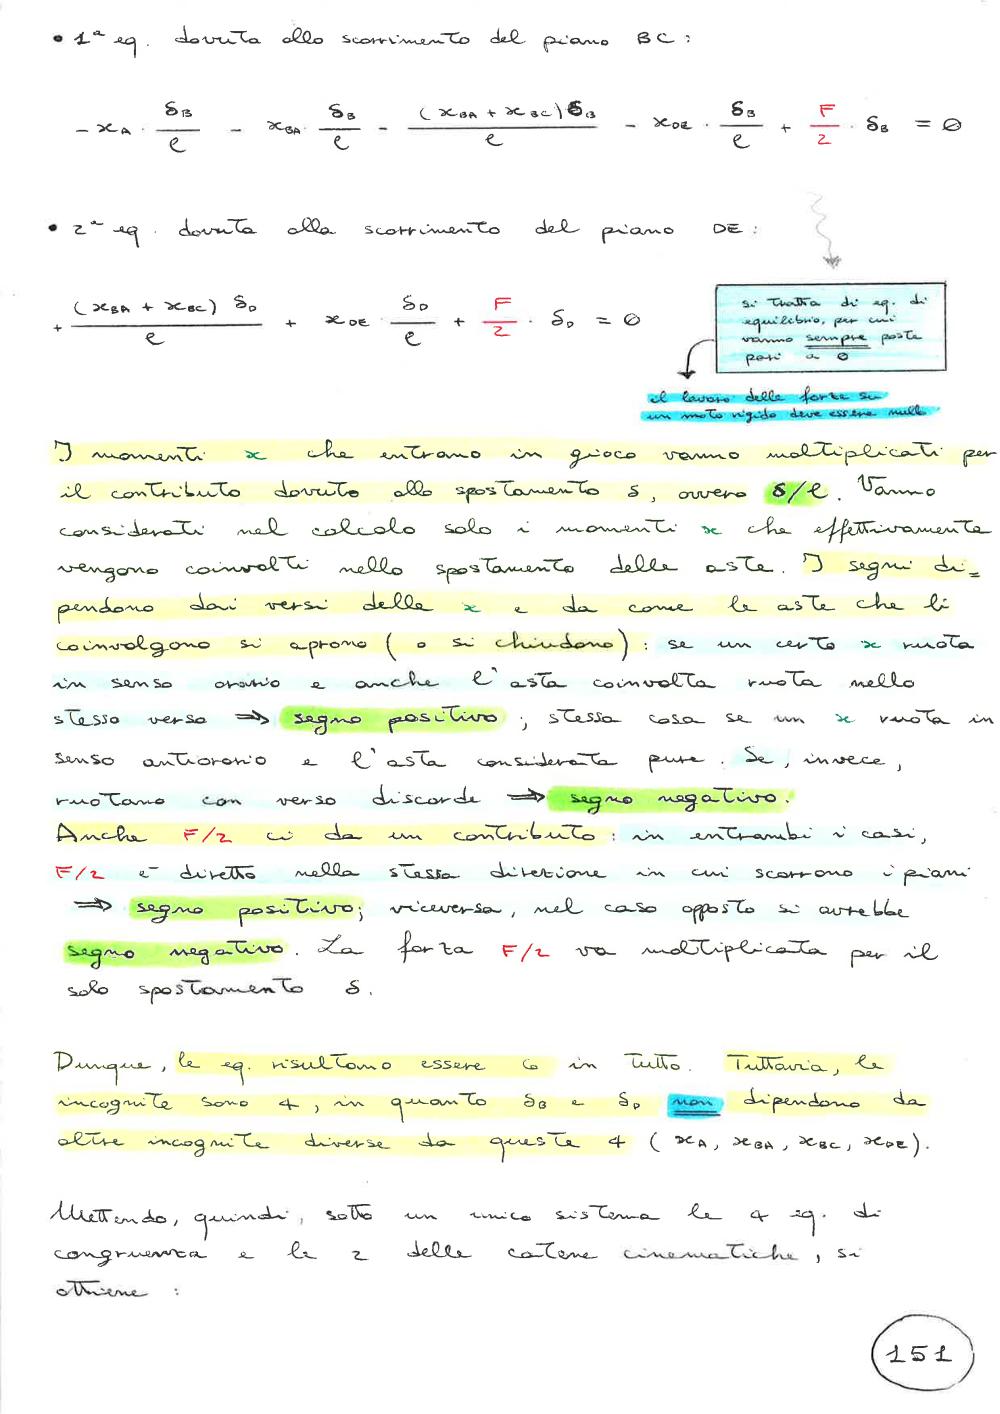 • 1ª eq. dovuta allo scorrimento del piano BC :
- xA · δB/l - xBA · δB/l - (xBA + xBC) δB/l - xDE · δB/l + F/2 · δB = 0
• 2ª eq. dovuta alla scorrimento del piano DE :
+ (xBA + xBC) δD/l + xDE · δD/l + F/2 · δD = 0
si tratta di eq. di
equilibrio, per cui
vanno sempre poste
pari a 0
il lavoro delle forze su
un moto rigido deve essere nullo
I momenti x che entrano in gioco vanno moltiplicati per
il contributo dovuto allo spostamento δ, ovvero δ/l. Vanno
considerati nel calcolo solo i momenti x che effettivamente
vengono coinvolti nello spostamento delle aste. I segni di=
pendono dai versi delle x e da come le aste che li
coinvolgono si aprono ( o si chiudono) : se un certo x ruota
in senso orario e anche l'asta coinvolta ruota nello
stesso verso ⇒ segno positivo ; stessa cosa se un x ruota in
senso antiorario e l'asta considerata pure. Se, invece,
ruotano con verso discorde ⇒ segno negativo.
Anche F/2 ci da un contributo : in entrambi i casi,
F/2 è diretto nella stessa direzione in cui scorrono i piani
⇒ segno positivo; viceversa, nel caso opposto si avrebbe
segno negativo. La forza F/2 va moltiplicata per il
solo spostamento δ.
Dunque, le eq. risultano essere 6 in tutto. Tuttavia, le
incognite sono 4, in quanto δB e δD non dipendono da
altre incognite diverse da queste 4 ( xA, xBA, xBC, xDE).
Mettendo, quindi, sotto un unico sistema le 4 eq. di
congruenza e le 2 delle catene cinematiche, si
ottiene :
151